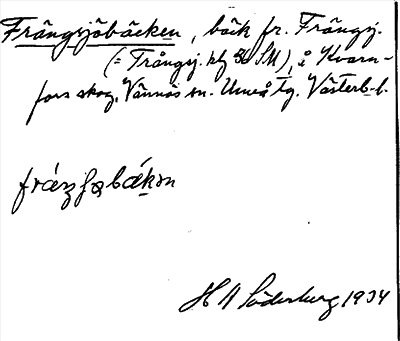 Frängsjöbäcken, bäck fr. Frängsj.
(= Trångsj. kbl SM), i Kvarn-
fors skog, Vännäs sn. Umeå tg. Västerb-l.
H A Söderberg 1934